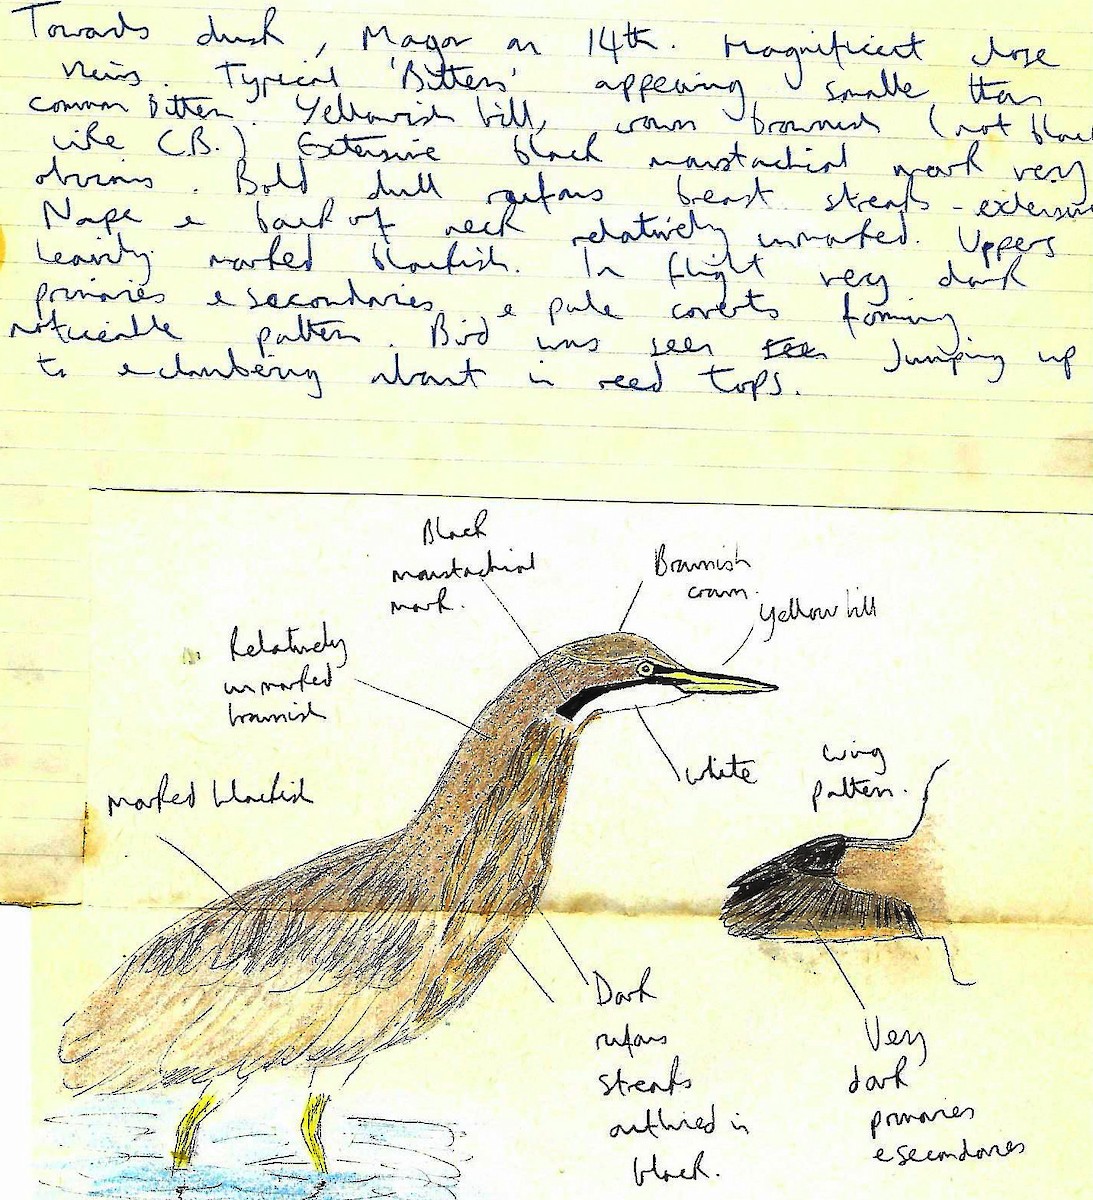 Towards dusk, Magor on 14th. Magnificent close
views. Typical 'Bittern' appearing smaller than
common Bittern. Yellowish bill, crown brownish (not black
like C.B.) Extensive black moustachial mark very
obvious. Bold dull rufous breast streaks - extensive
Nape & back of neck relatively unmarked. Uppers
heavily marked blackish. In flight very dark
primaries & secondaries & pale coverts forming
noticeable pattern. Bird was seen jumping up
to & clambering about in reed tops.
Black
moustachial
mark.
Brownish
crown.
Yellow bill
Relatively
unmarked
brownish
white
wing
pattern.
marked blackish
Dark
rufous
streaks
outlined in
black.
Very
dark
primaries
& secondaries